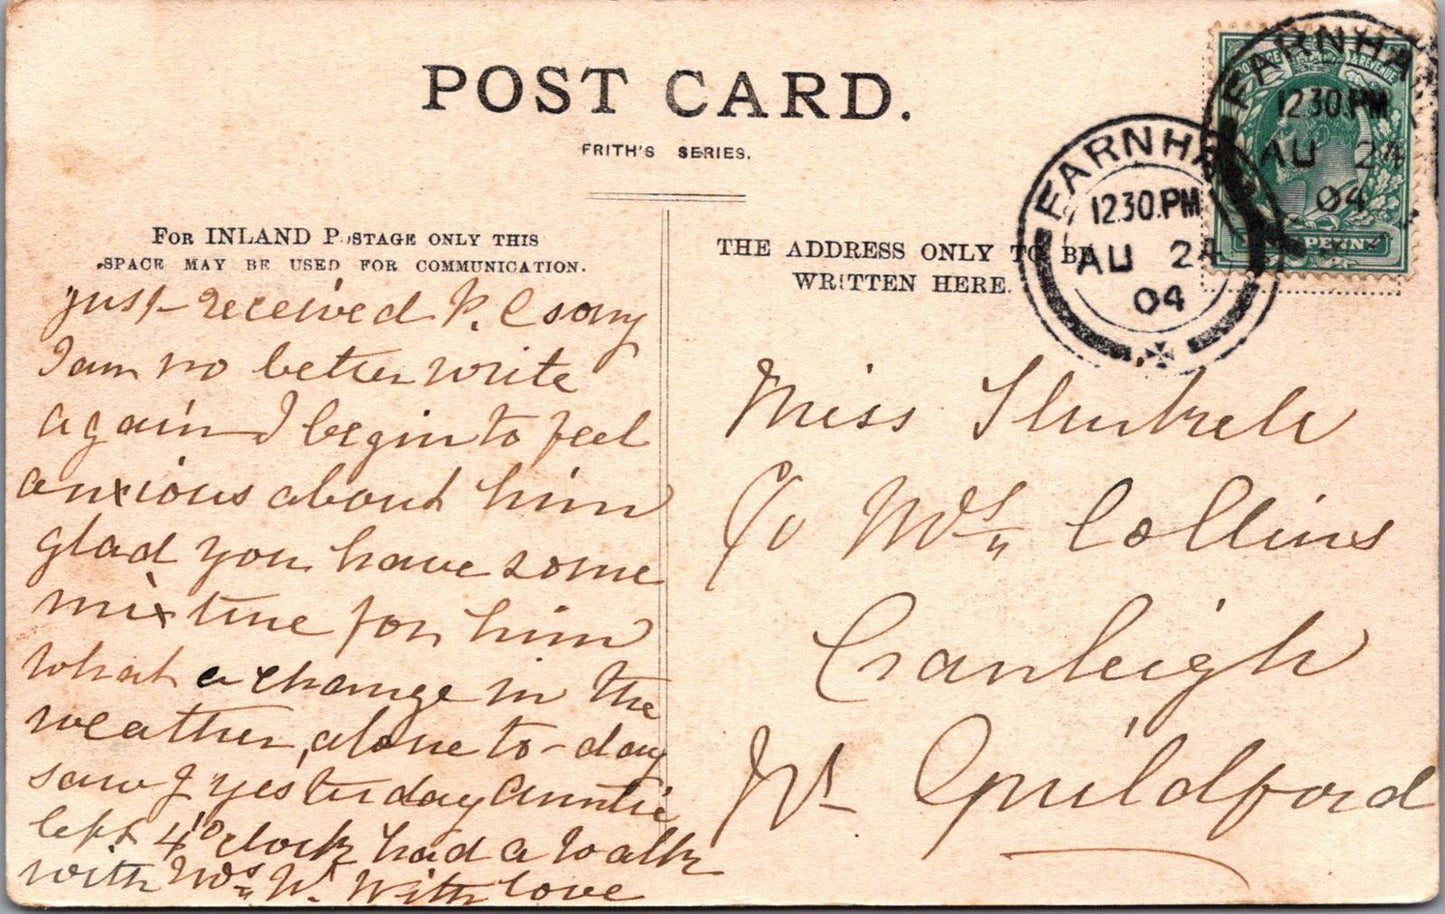 POST CARD.
FRITH'S SERIES.
FOR INLAND POSTAGE ONLY THIS
SPACE MAY BE USED FOR COMMUNICATION.
THE ADDRESS ONLY TO BE
WRITTEN HERE.
FARNHA
12.30.PM
AU 24
04
FARNHA
12.30.PM
AU 24
04
& REVENUE
just received P.C sorry
I am no better write
again I begin to feel
anxious about him
glad you have some
mixture for him
What a change in the
weather, alone to-day
saw J yesterday Auntie
left 4 o'clock had a walk
with Mrs W. With love
Miss
c/o Mrs Collins
Cranleigh
Nr Guildford